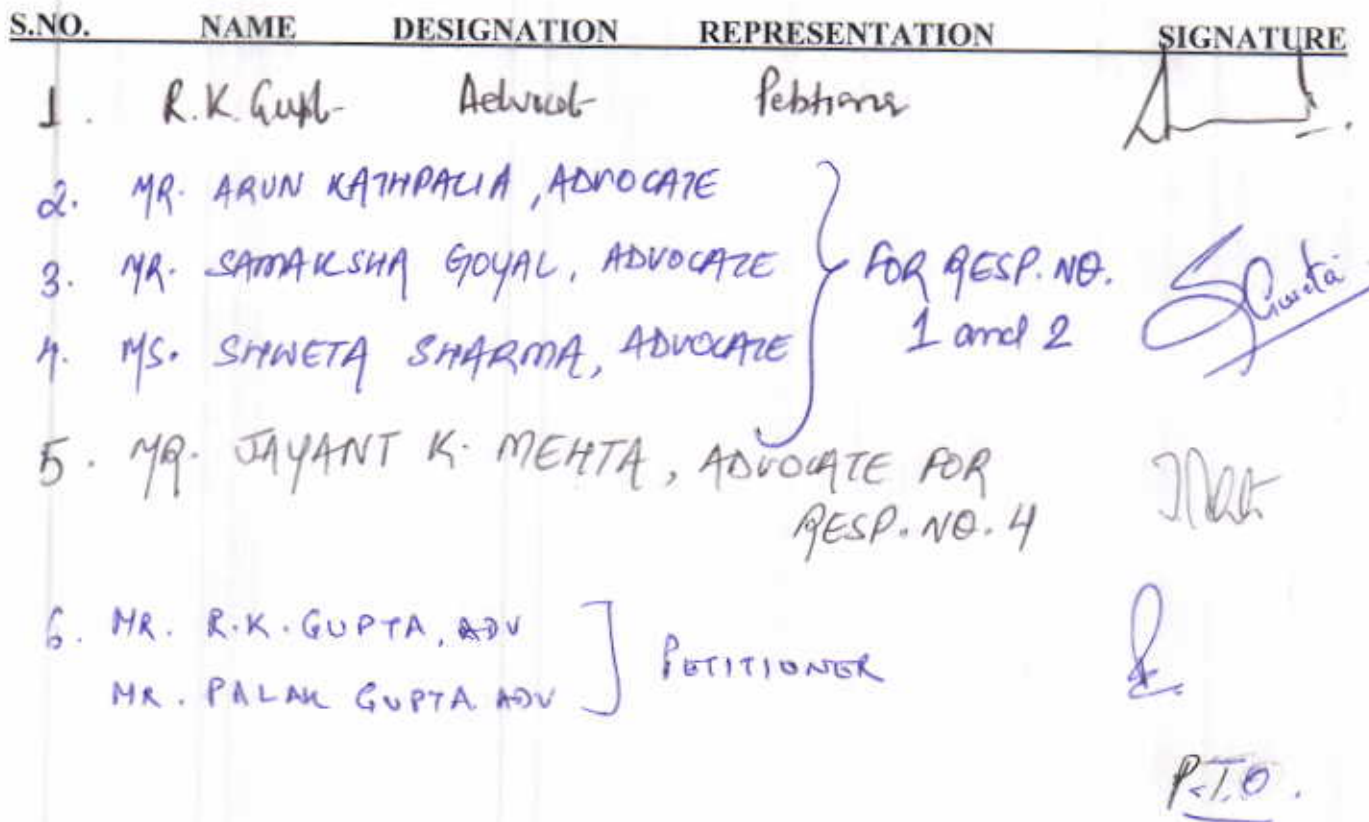 S.NO. NAME DESIGNATION REPRESENTATION SIGNATURE
1. R.K. Gupta Advocate Petitioner
2. MR. ARUN KATHPALIA, ADVOCATE
3. MR. SAMAKSHA GOYAL, ADVOCATE
4. MS. SHWETA SHARMA, ADVOCATE
FOR RESP. NO.
1 and 2
Shweta
5. MR. JAYANT K. MEHTA, ADVOCATE FOR
RESP. NO. 4
6. MR. R.K. GUPTA, ADV
MR. PALAK GUPTA ADV
PETITIONER
P.T.O.